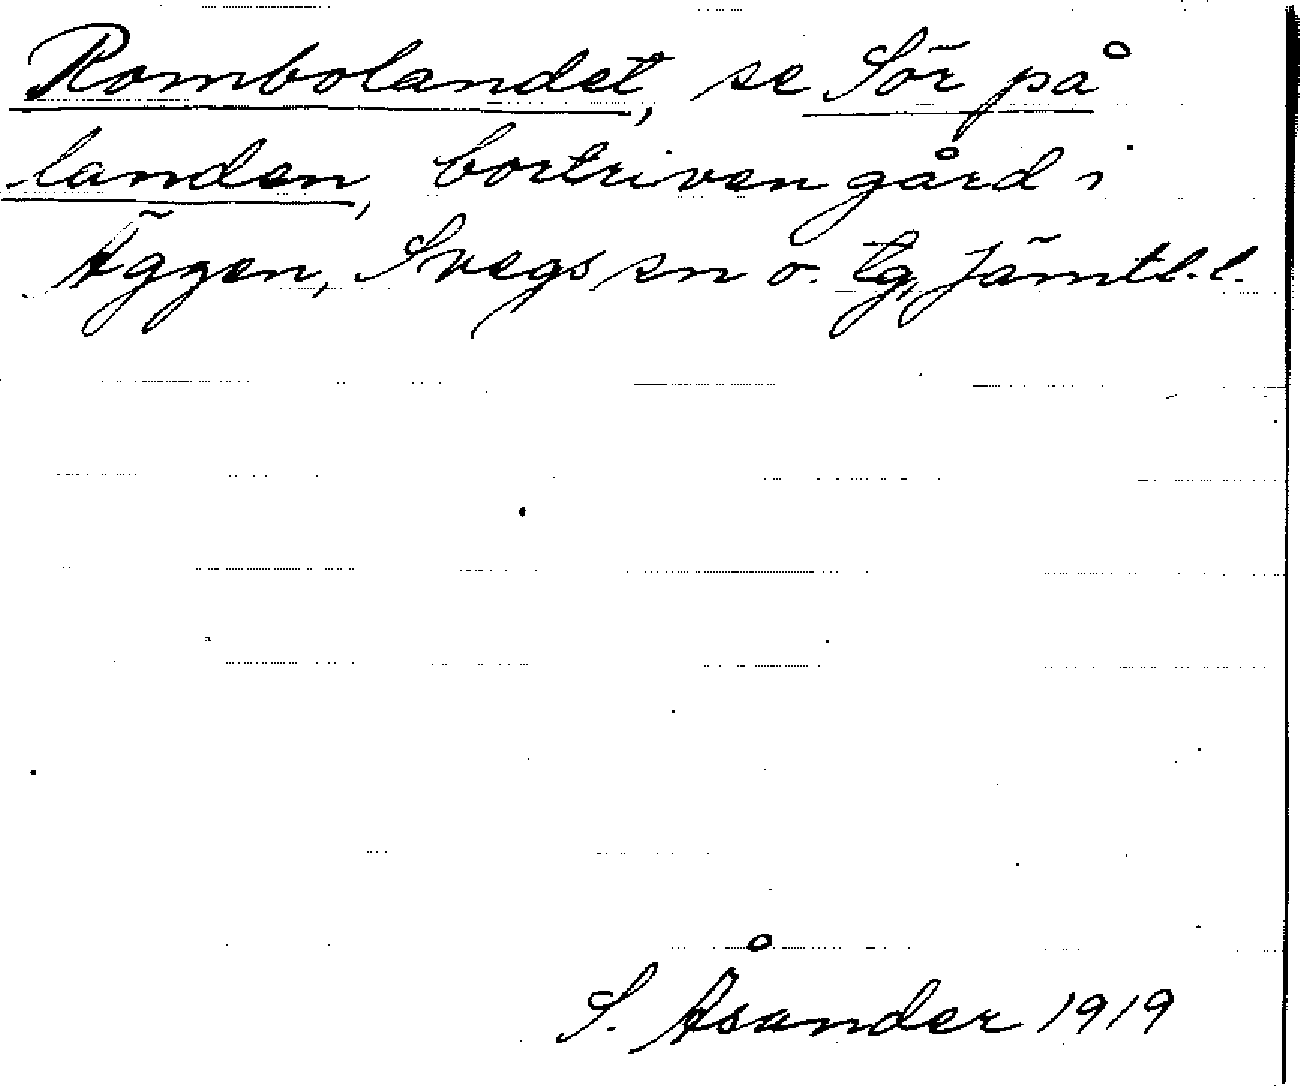 Rombolandet, se Sör på
landen, bortriven gård i
Äggen, Svegs sn o. tg, Jämtl. l.
S. Åsander 1919